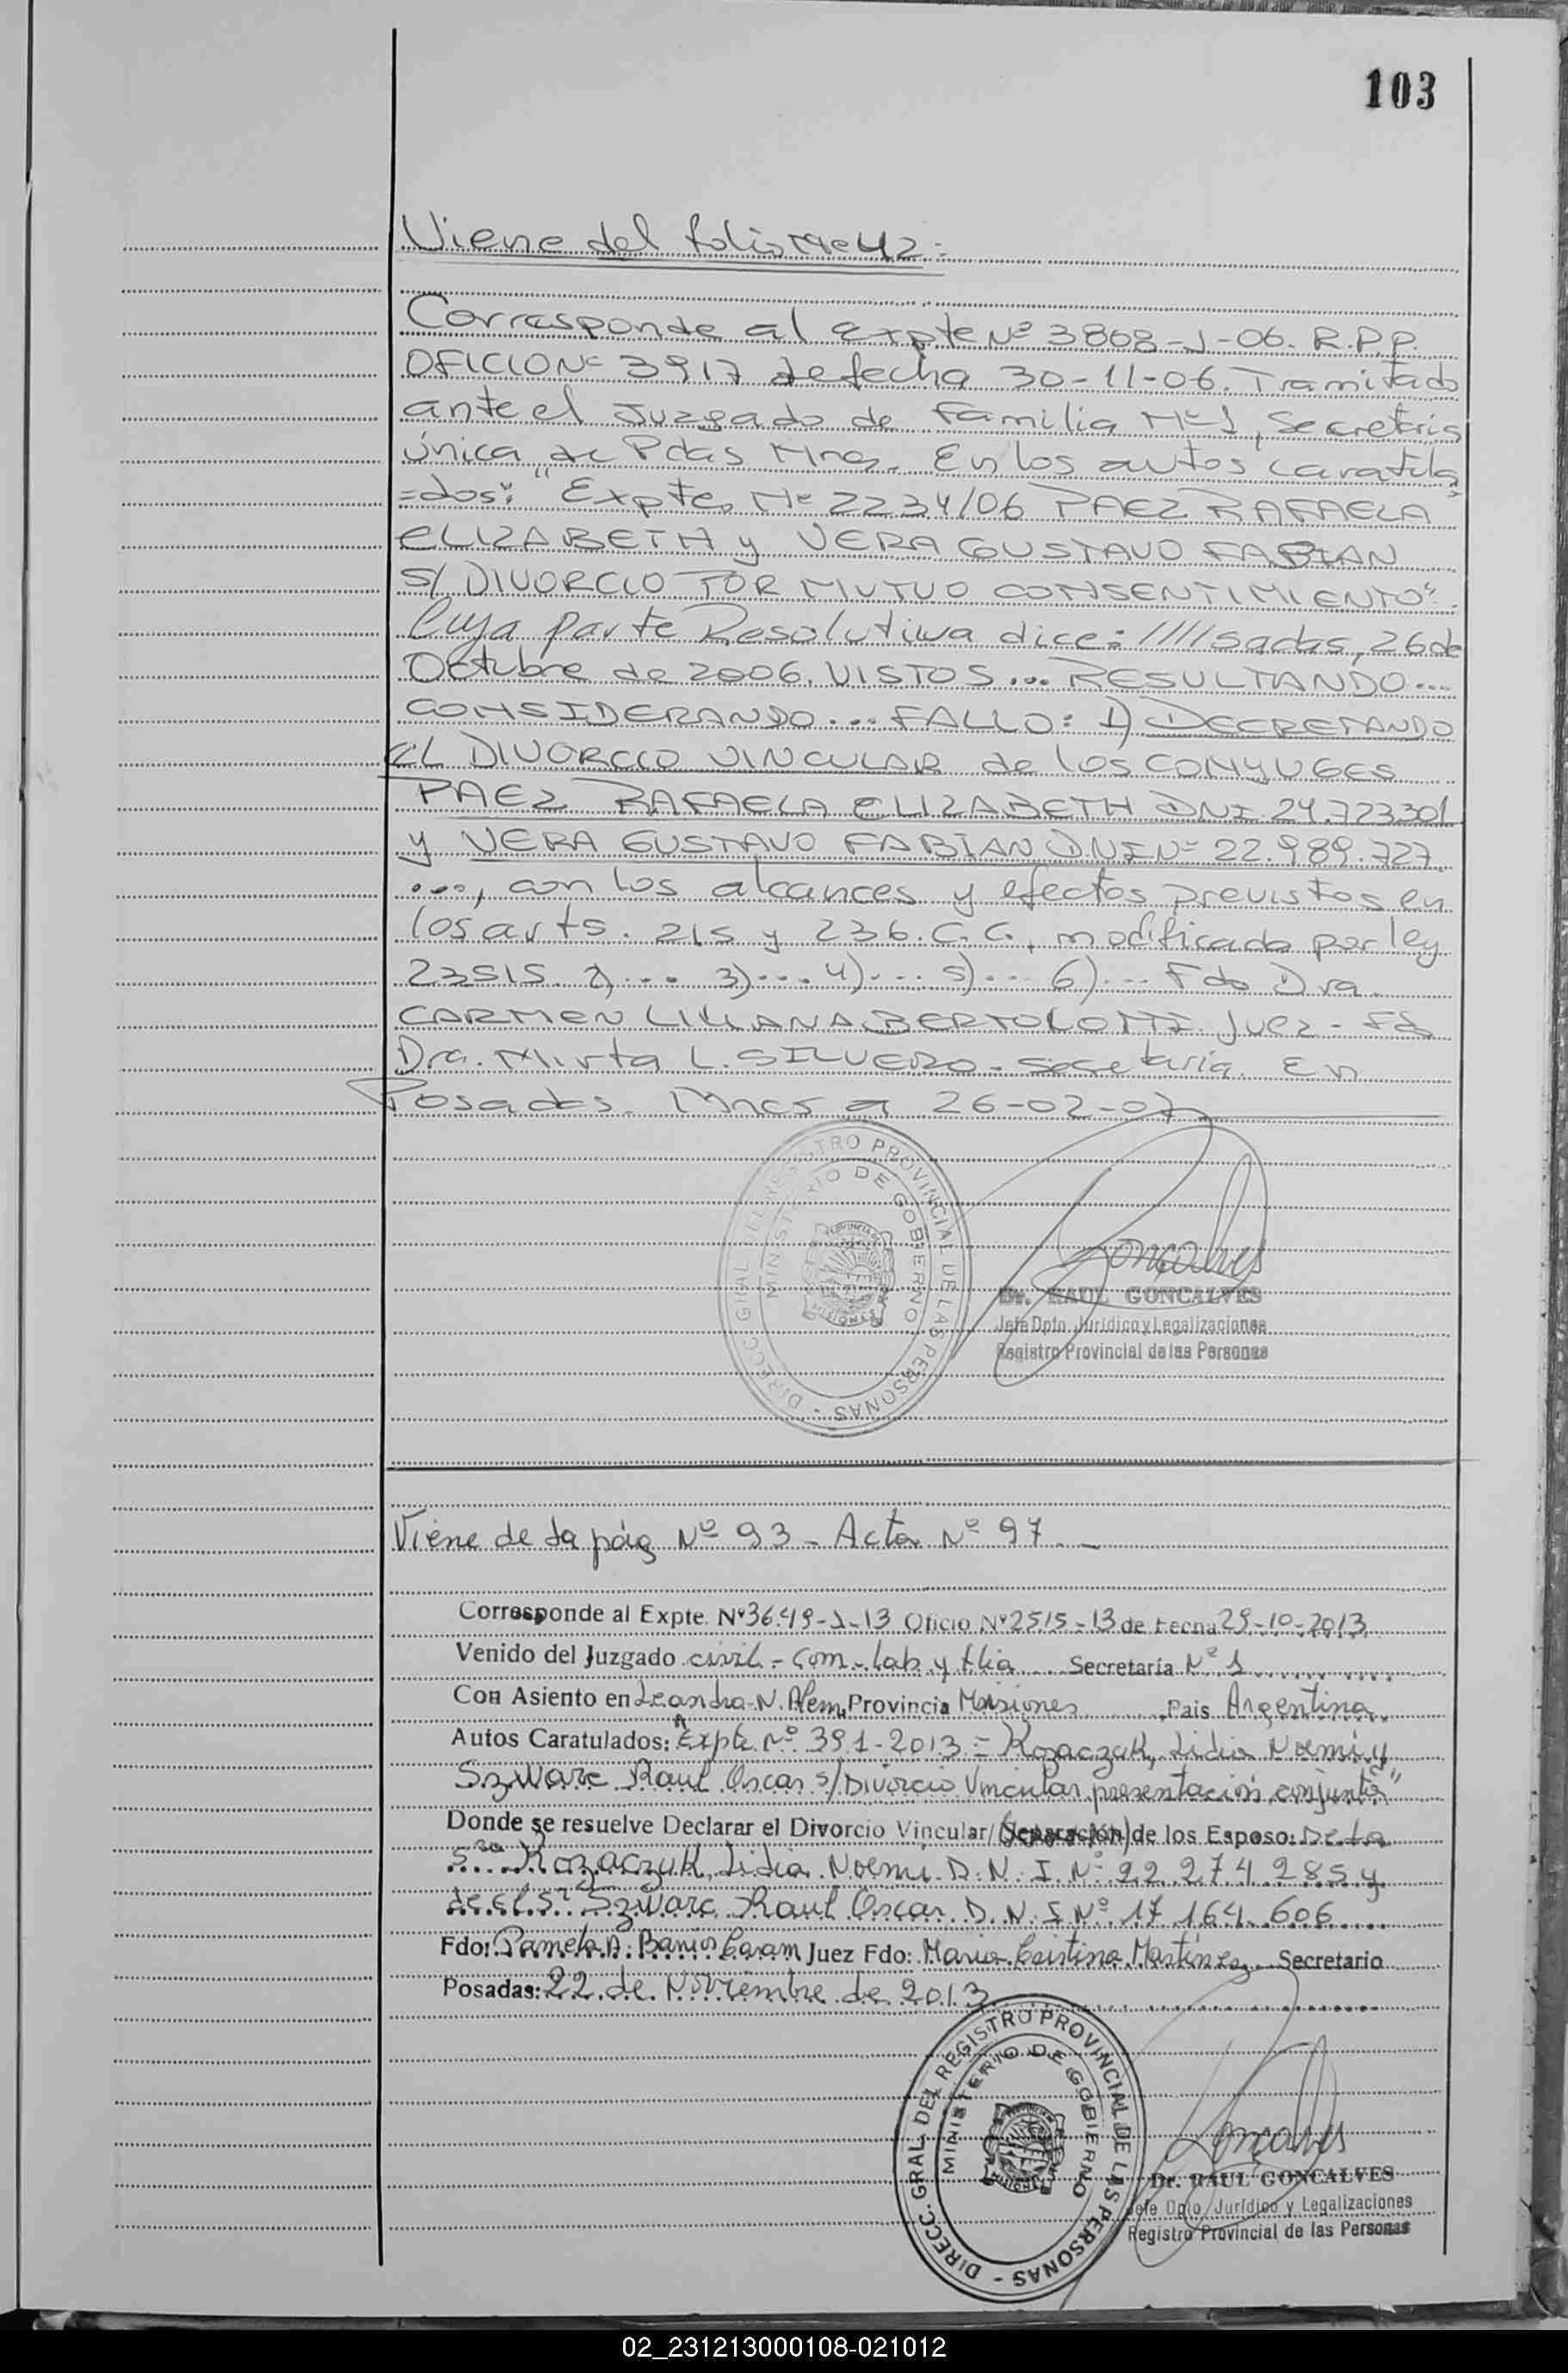 103
Viene del folio Nº 42:
Corresponde al Expte Nº 3868-J-06. R.P.P.
OFICIO Nº 3917 de fecha 30-11-06. Tramitado
ante el Juzgado de Familia Nº 1, Secretaria
Única, de Pdas Mnes. En los autos caratula
=dos: "Expte. Nº 2234/06 PAEZ RAFAELA
ELIZABETH y VERA GUSTAVO FABIAN
S/ DIVORCIO POR MUTUO CONSENTIMIENTO".
Cuya parte Resolutiva dice: /////sadas, 26 de
Octubre de 2006. VISTOS... RESULTANDO...
CONSIDERANDO... FALLO: 1) DECRETANDO
EL DIVORCIO VINCULAR de los CONYUGES
PAEZ RAFAELA ELIZABETH DNI. 24.723301
y VERA GUSTAVO FABIAN D.N.I Nº 22.989.727
...., con los alcances y efectos previstos en
los arts. 215 y 236. C.C., modificado por ley
23515. 2).... 3).... 4).... 5)... 6)... Fdo Dra.
CARMEN LILIANA BERTOLOTTI. Juez - Fdo
Dra. Mirta L. SILVERO - Secretaria. En
Posadas. Mnes a 26-02-07
DIRECC. GRAL. DEL REGISTRO PROVINCIAL DE LAS PERSONAS -
MINISTERIO DE GOBIERNO
Goncalves
Dr. RAUL GONCALVES
Jefe Dpto. Jurídico y Legalizaciones
Registro Provincial de las Personas
Viene de la pág Nº 93 - Acta Nº 97. -
Corresponde al Expte. Nº 3649-J-13 Oficio Nº 2515-13 de fecha 29-10-2013
Venido del Juzgado civil - Com - lab y flia Secretaría Nº 1
Con Asiento en Leandro N. Alem, Provincia Misiones Pais Argentina
Autos Caratulados: "Expte. Nº 391-2013 = Kozaczuk, Lidia Noemi y
Szwarc Raul Oscar s/ Divorcio Vincular presentación conjunta"
Donde se resuelve Declarar el Divorcio Vincular/(Separación) de los Esposo: De la
Sra Kozaczuk, Lidia Noemi D.N.I. Nº 22 274 285 y
de el Sr Szwarc Raul Oscar D.N.I Nº 17 164 606
Fdo: Pamela A. Barrios Caram Juez Fdo: Maria Cristina Martínez Secretario
Posadas: 22 de Noviembre de 2013
DIRECC. GRAL. DEL REGISTRO PROVINCIAL DE LAS PERSONAS -
MINISTERIO DE GOBIERNO
Goncalves
Dr. RAUL GONCALVES
Jefe Dpto. Jurídico y Legalizaciones
Registro Provincial de las Personas
02_231213000108-021012